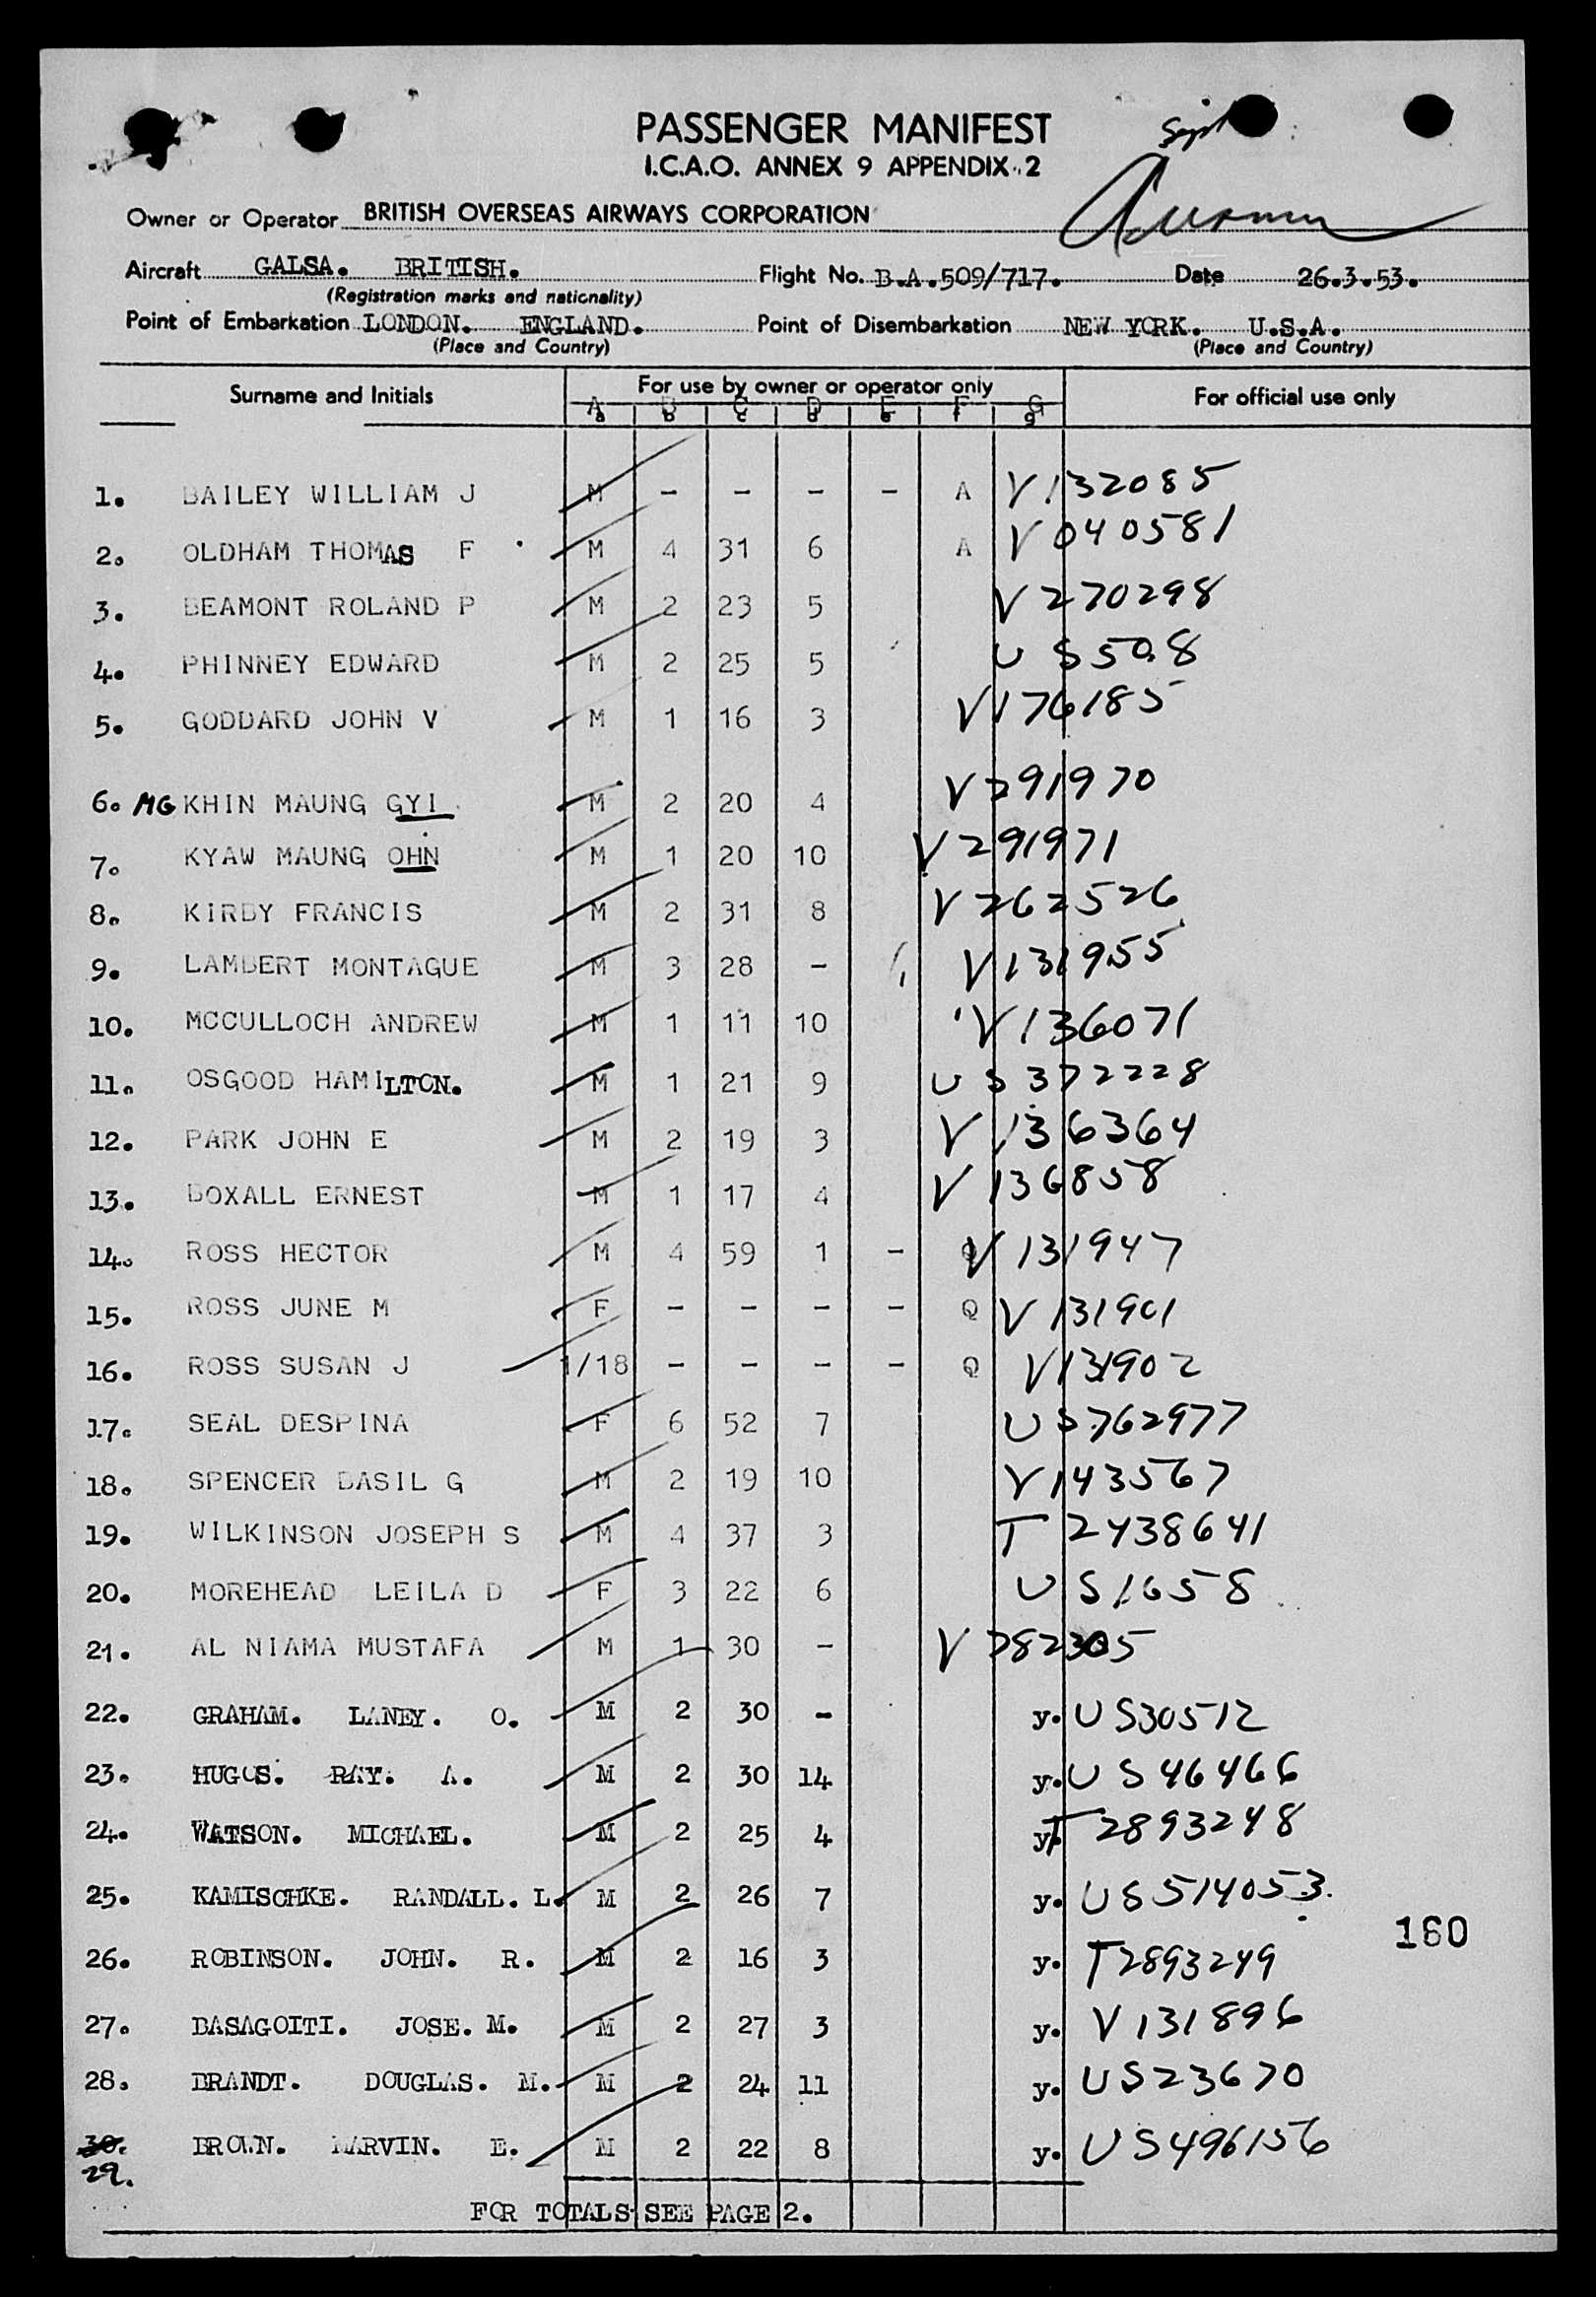 Sept
PASSENGER MANIFEST
I.C.A.O. ANNEX 9 APPENDIX 2
Owner or Operator BRITISH OVERSEAS AIRWAYS CORPORATION
Aircraft GALSA. BRITISH. Flight No. B.A.509/717. Date 26.3.53.
(Registration marks and nationality)
Point of Embarkation LONDON. ENGLAND. Point of Disembarkation NEW YORK. U.S.A.
(Place and Country) (Place and Country)
Surname and Initials For use by owner or operator only For official use only
A B C D E F G
a b c d e f g
1. BAILEY WILLIAM J M - - - - A V132085
2. OLDHAM THOMAS F M 4 31 6 A V040581
3. BEAMONT ROLAND P M 2 23 5 V270298
4. PHINNEY EDWARD M 2 25 5 US508
5. GODDARD JOHN V M 1 16 3 V176185
6. MG KHIN MAUNG GYI M 2 20 4 V291970
7. KYAW MAUNG OHN M 1 20 10 V291971
8. KIRBY FRANCIS M 2 31 8 V262526
9. LAMBERT MONTAGUE M 3 28 - V131955
10. MCCULLOCH ANDREW M 1 11 10 V136071
11. OSGOOD HAMILTON. M 1 21 9 US372228
12. PARK JOHN E M 2 19 3 V136364
13. BOXALL ERNEST M 1 17 4 V136858
14. ROSS HECTOR M 4 59 1 - Q V131947
15. ROSS JUNE M F - - - - Q V131901
16. ROSS SUSAN J 1/18 - - - - Q V131902
17. SEAL DESPINA F 6 52 7 US762977
18. SPENCER BASIL G M 2 19 10 V143567
19. WILKINSON JOSEPH S M 4 37 3 T2438641
20. MOREHEAD LEILA D F 3 22 6 US1658
21. AL NIAMA MUSTAFA M 1 30 - V282305
22. GRAHAM. LANEY. O. M 2 30 - y. US30512
23. HUGUS. RAY. A. M 2 30 14 y. US46466
24. WATSON. MICHAEL. M 2 25 4 y. T2893248
25. KAMISCHKE. RANDALL. L. M 2 26 7 y. US514053.
160
26. ROBINSON. JOHN. R. M 2 16 3 y. T2893249
27. BASAGOITI. JOSE. M. M 2 27 3 y. V131896
28. BRANDT. DOUGLAS. M. M 2 24 11 y. US23670
30. BROWN. MARVIN. E. M 2 22 8 y. US496156
29.
FOR TOTALS SEE PAGE 2.